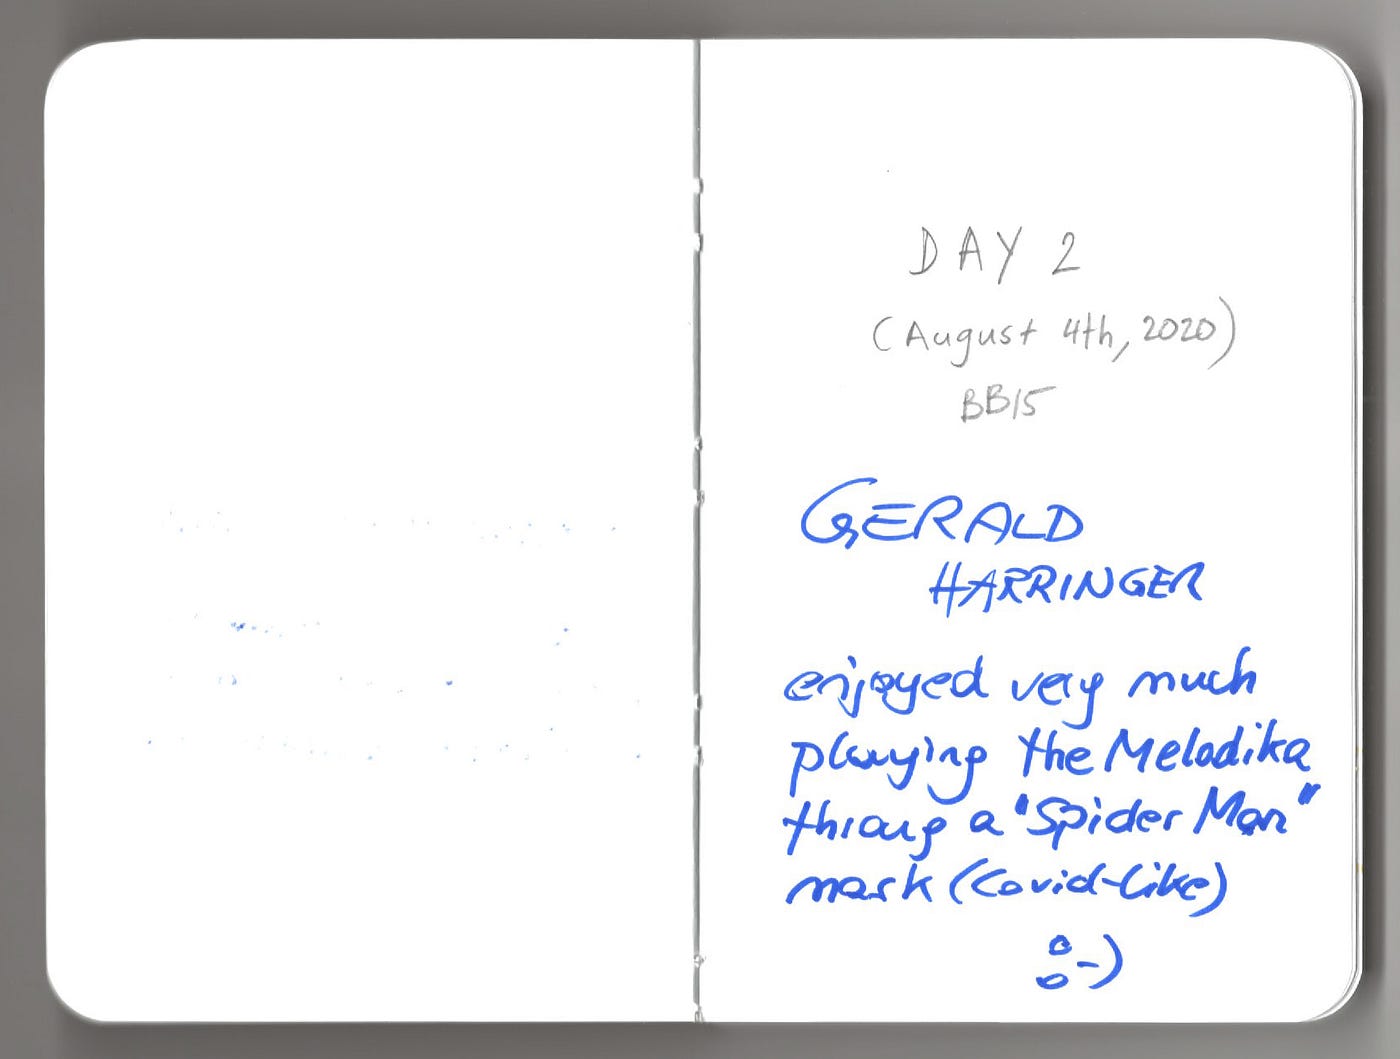 DAY 2
(August 4th, 2020)
BB15
GERALD
HARRINGER
enjoyed very much
playing the Melodika
throug a "Spider Man"
mask (Covid-like)
:-)